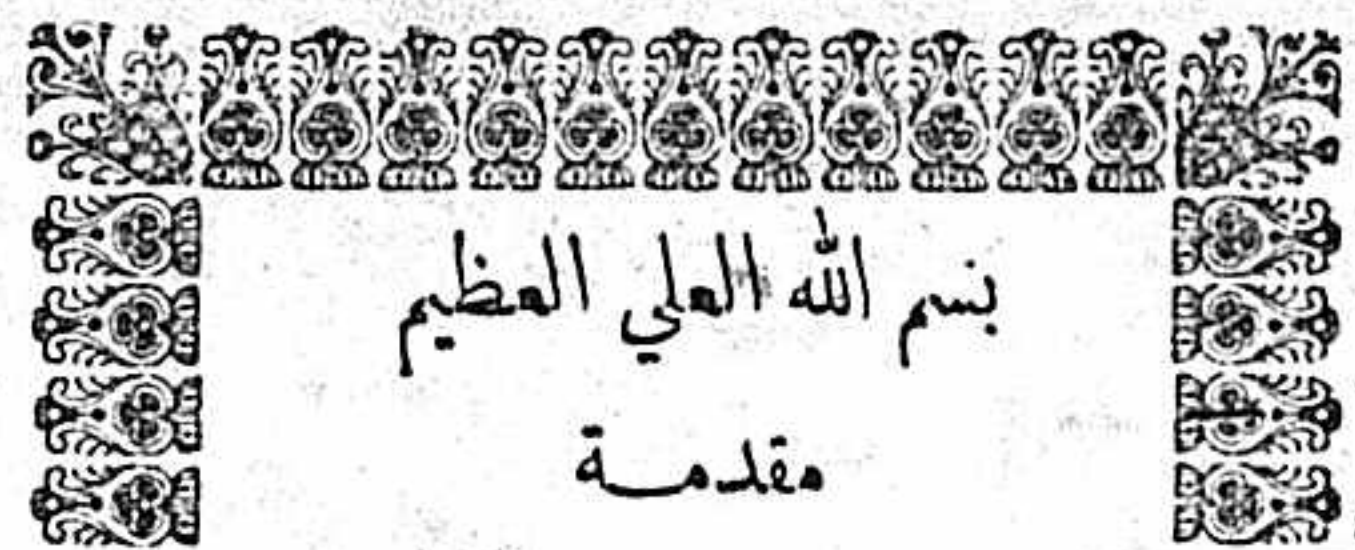 بسم الله العلي العظيم
مقدمة